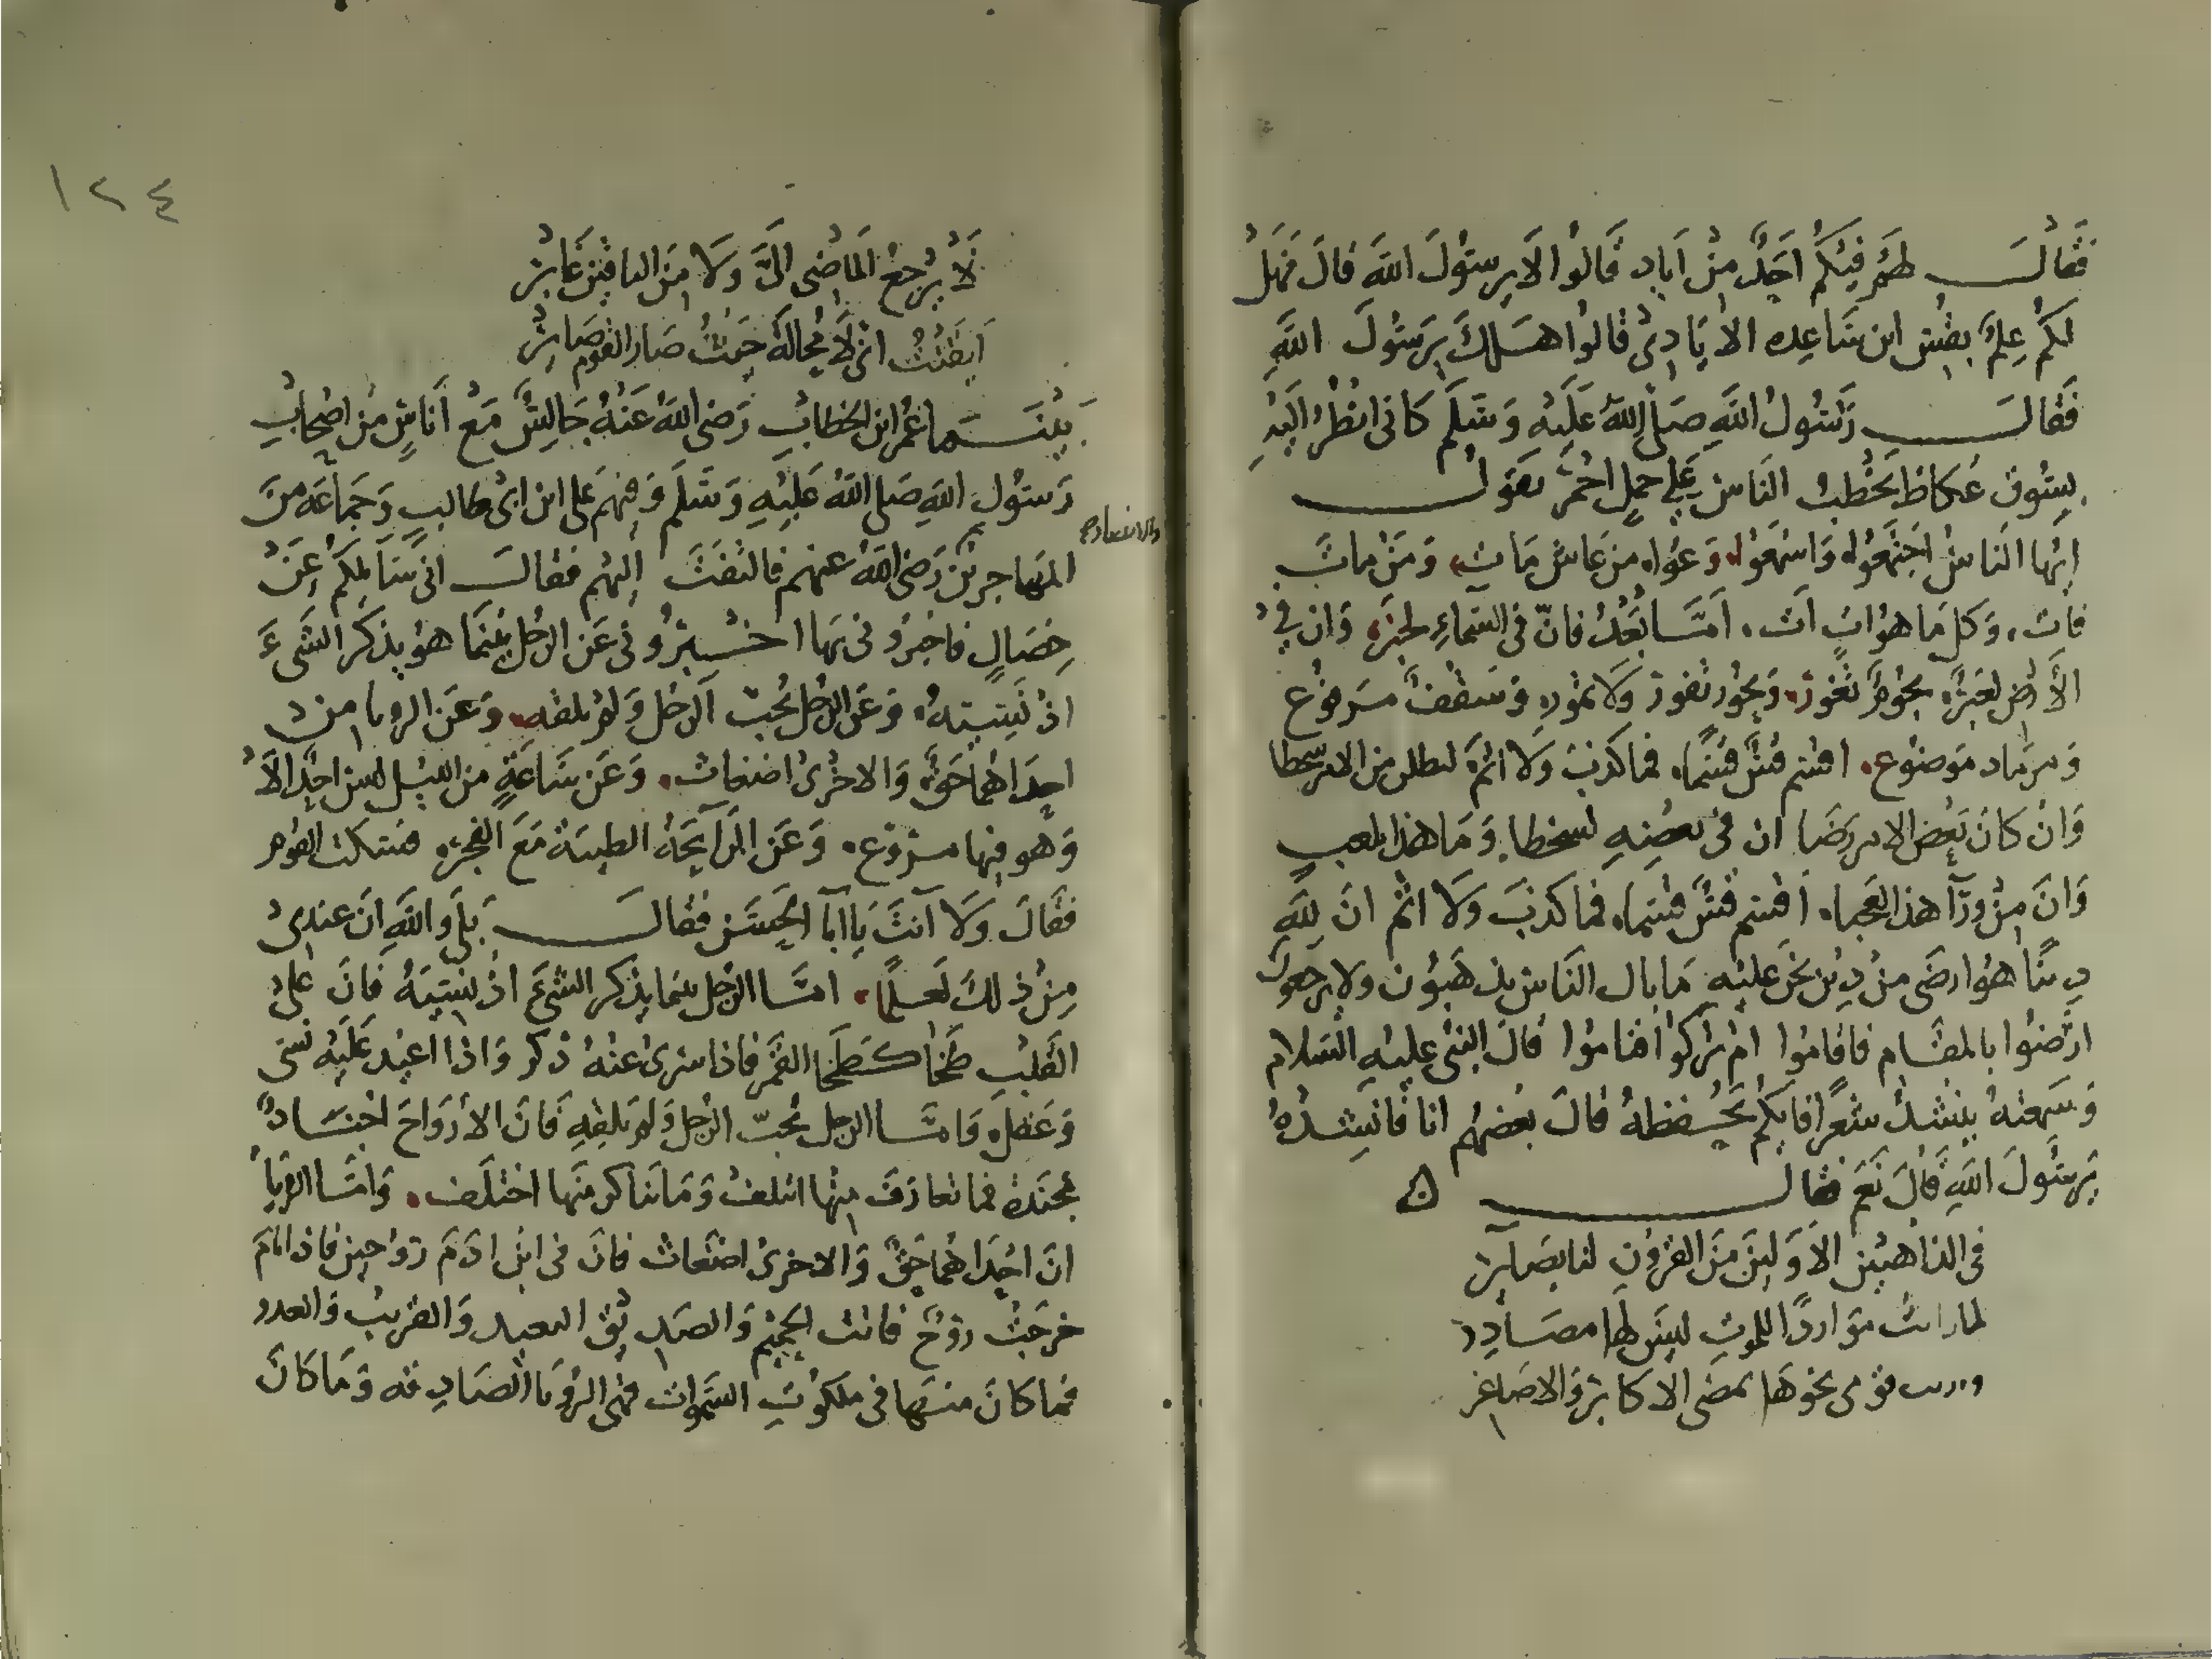 فقال لهم فيكم احد من اياد قالوا الا يرسول الله قال فهل
لكم علم بقس ابن ساعده الايادى قالوا هلك يرسول الله
فقال رسول الله صلى الله عليه وسلم كانى انظر اليه
بسوق عكاظ يخطب الناس على جمل احمر يقول
ايها الناس اجتمعوا واسمعوا وعوا من عاش مات ومن مات
فات وكل ما هو ات ات اما بعد فان فى السماء لخبر وان فى
الارض لعبر نجوم تغور وبحور تفور ولا تمور وسقف مرفوع
ومهاد موضوع اقسم قس قسما فما كذب ولا اثم ليطلبن من الامر سخطا
وان كان بعض الامر رضا ان فى بعضه لسخطا وما هذا بلعب
وان من ورآ هذا لعجبا اقسم قس قسما فما كذب ولا اثم ان لله
دينا هو ارضى من دين نحن عليه ما بال الناس يذهبون ولا يرجعون
ارضوا بالمقام فاقاموا ام تركوا فناموا قال النبى عليه السلام
وسمعته ينشد شعرا فايكم يحفظه قال بعضهم انا فانشده
يرسول الله قال نعم فقال ه
فى الذاهبين الاولين من القرون لنا بصاير
لما رايت مواردا للموت ليس لها مصادر
ورايت قومى نحوها يمضى الاكابر والاصاغر
١٢٤
لا يرجع الماضى الى ولا من الباقين غابر
ايقنت انى لا محالة حيث صار القوم صاير
بينما عمر ابن الخطاب رضى الله عنه جالس مع اناس من اصحاب
رسول الله صلى الله عليه وسلم وفيهم على ابن ابى طالب وجماعه من
المهاجرين رضى الله عنهم فالتفت اليهم فقال انى سايلكم عن
والانصار صح
خصال فاخبرونى بها اخبرونى عن الرجل بينما هو يذكر الشىء
اذ نسيه وعن الرجل يحب الرجل ولم يلقه وعن الرويا من
احداهما حق والاخرى اضغاث وعن ساعة من الليل ليس احد الا
وهو فيها مروع وعن الرآيحة الطيبة مع الفجر فسكت القوم
فقال ولا انت يا ابا الحسن فقال بلى والله ان عندى
من ذلك لعلما اما الرجل بينما يذكر الشىء اذ نسيه فان على
القلب طخا كطخا القمر فاذا سرى عنه ذكر واذا اعيد عليه نسى
وغفل واما الرجل يحب الرجل ولم يلقه فان الارواح اجناد
مجندة فما تعارف منها ائتلف وما تناكر منها اختلف واما الرويا
ان احداهما حق والاخرى اضغاث فان فى ابن ادم روحين فاذا نام
خرجت روح فاتت الحميم والصديق البعيد والقريب والعدو
فما كان منها فى ملكوت السموات فهى الرويا الصادقه وما كان